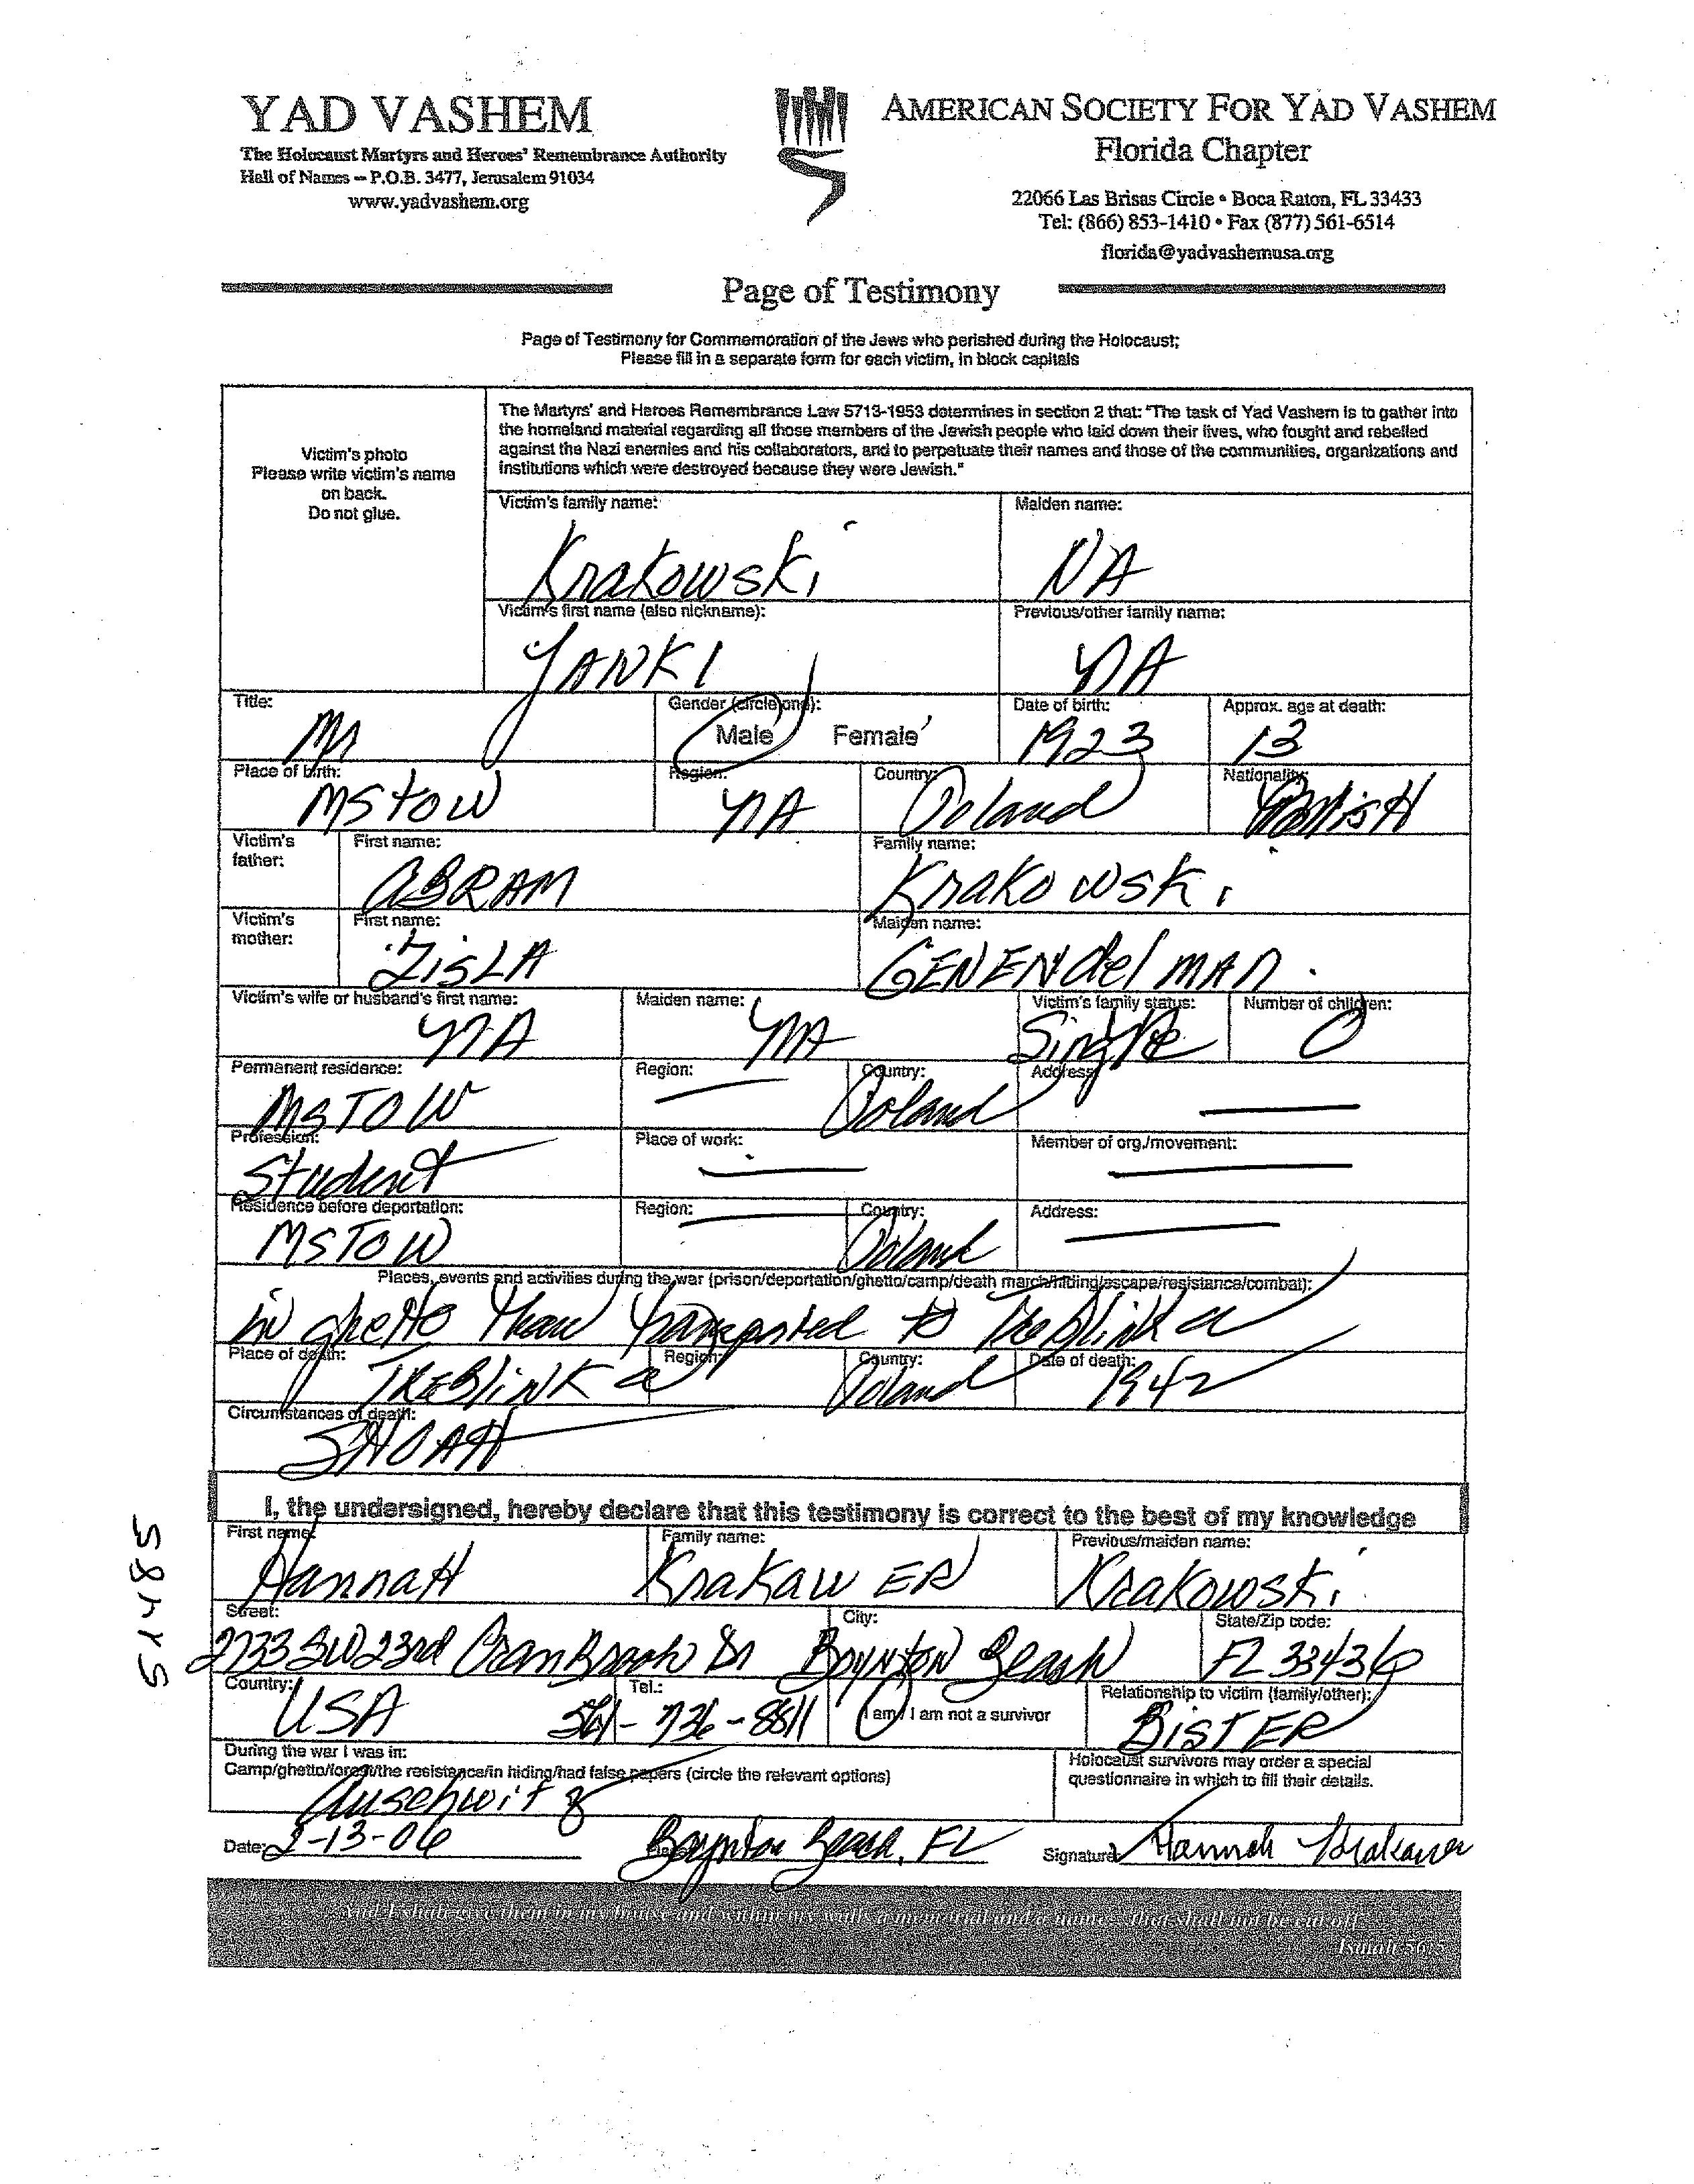 YAD VASHEM
The Holocaust Martyrs' and Heroes' Remembrance Authority
Hall of Names – P.O.B. 3477, Jerusalem 91034
www.yadvashem.org
AMERICAN SOCIETY FOR YAD VASHEM
Florida Chapter
22066 Las Brisas Circle • Boca Raton, FL 33433
Tel: (866) 853-1410 • Fax (877) 561-6514
florida@yadvashemusa.org
Page of Testimony
Page of Testimony for Commemoration of the Jews who perished during the Holocaust;
Please fill in a separate form for each victim, in block capitals
Victim's photo
Please write victim's name
on back.
Do not glue.
The Martyrs' and Heroes Remembrance Law 5713-1953 determines in section 2 that: "The task of Yad Vashem is to gather into
the homeland material regarding all those members of the Jewish people who laid down their lives, who fought and rebelled
against the Nazi enemies and his collaborators, and to perpetuate their names and those of the communities, organizations and
institutions which were destroyed because they were Jewish."
Victim's family name: Maiden name:
Krakowski NA
Victim's first name (also nickname): Previous/other family name:
YANKI NA
Title: Gender (circle one): Date of birth: Approx. age at death:
Mr Male Female 1923 13
Place of birth: Region: Country: Nationality:
MSTOW NA Poland Polish
Victim's father: First name: Family name:
ABRAM Krakowski
Victim's mother: First name: Maiden name:
ZISLA GENENdelMAN
Victim's wife or husband's first name: Maiden name: Victim's family status: Number of children:
NA NA Single 0
Permanent residence: Region: Country: Address:
MSTOW Poland
Profession: Place of work: Member of org./movement:
Student
Residence before deportation: Region: Country: Address:
MSTOW Poland
Places, events and activities during the war (prison/deportation/ghetto/camp/death march/hiding/escape/resistance/combat):
in ghetto than transported to Treblinka
Place of death: Region: Country: Date of death:
TREBLINKA Poland 1942
Circumstances of death:
SHOAH
I, the undersigned, hereby declare that this testimony is correct to the best of my knowledge
First name: Family name: Previous/maiden name:
HannaH KrakawER Krakowski
Street: City: State/Zip code:
2733 SW 23rd CranBrook Dr BOYNTON Beach FL 33436
Country: Tel.: I am / I am not a survivor Relationship to victim (family/other):
USA 561-736-8811 SISTER
During the war I was in:
Camp/ghetto/forest/the resistance/in hiding/had false papers (circle the relevant options)
Auschwitz
Holocaust survivors may order a special
questionnaire in which to fill their details.
Date: 2-13-06 Boynton Beach, FL Signature Hannah Krakawer
And I shall give them in my house and within my walls a memorial and a name... that shall not be cut off
Isaiah 56:5
51485